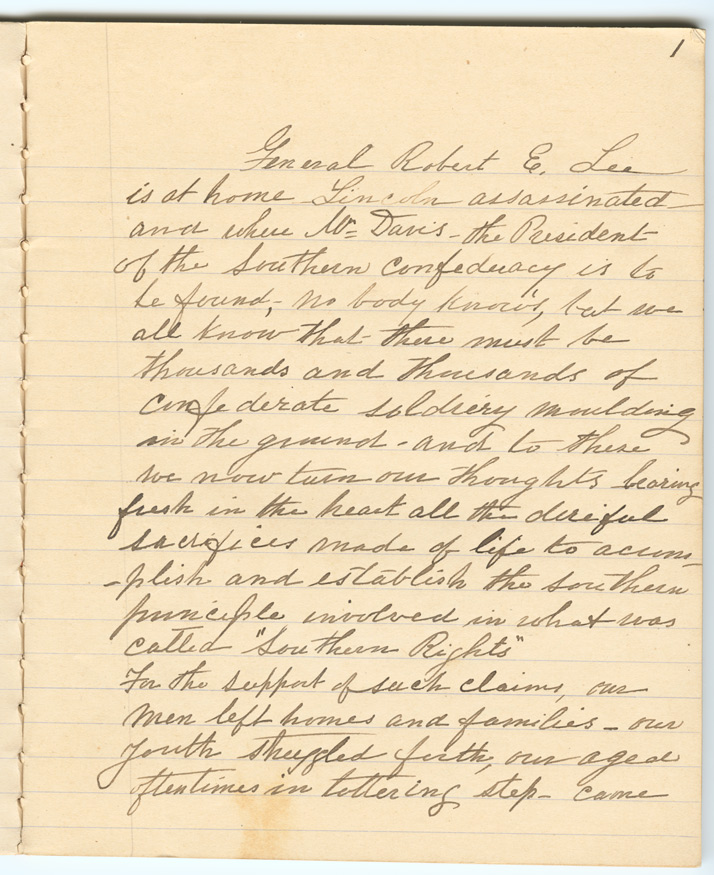 1
General Robert E. Lee
is at home Lincoln assassinated
and where Mr. Davis - the President
of the Southern Confederacy is to
be found, - no body knows, but we
all know that there must be
thousands and thousands of
Confederate soldiery moulding
in the ground - and to these
we now turn our thoughts bearing
fresh in the heart all the direful
sacrifices made of life to accom-
-plish and establish the southern
principle involved in what was
called "Southern Rights"
For the support of such claims, our
men left homes and families - our
youth struggled forth, our aged
oftentimes in tottering step - came